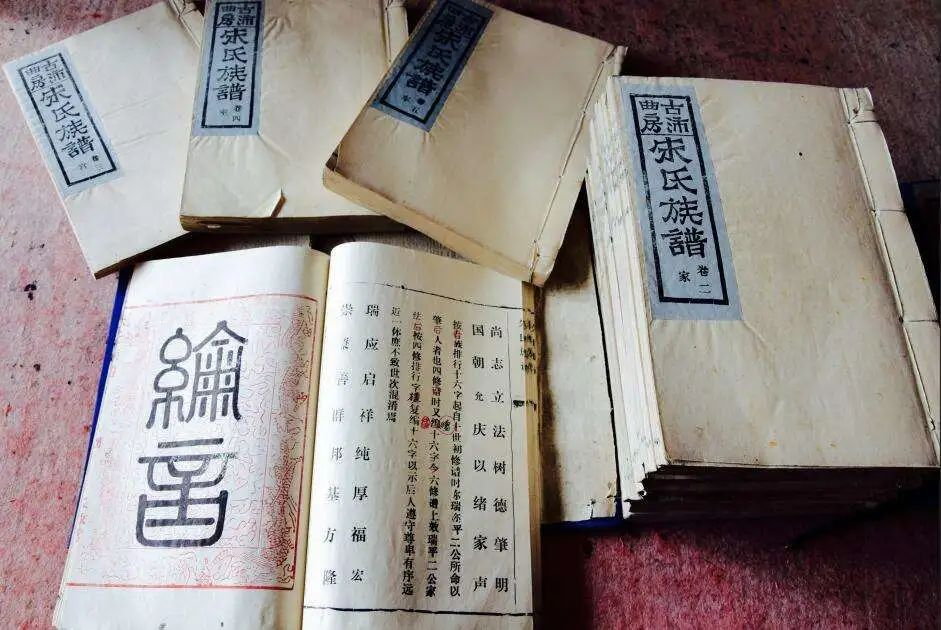 古沛
曲房
宋氏族譜
卷三
古沛
曲房
宋氏族譜
卷四
古沛
曲房
宋氏族譜
古沛
曲房
宋氏族譜
卷二
家
尚志立法树德肇明
国朝允庆以绪家声
按右族排行十六字起自十世初修谱时东瑞东平二公所命以
肇后人者也四修谱时又十六字今六修谱上敦瑞平二公家
法后按四修排行字样复编十六字以示后人遵守尊卑有序远
近休庶不致世次混淆焉
瑞应启祥纯厚福宏
崇善群邦基方隆
綸言